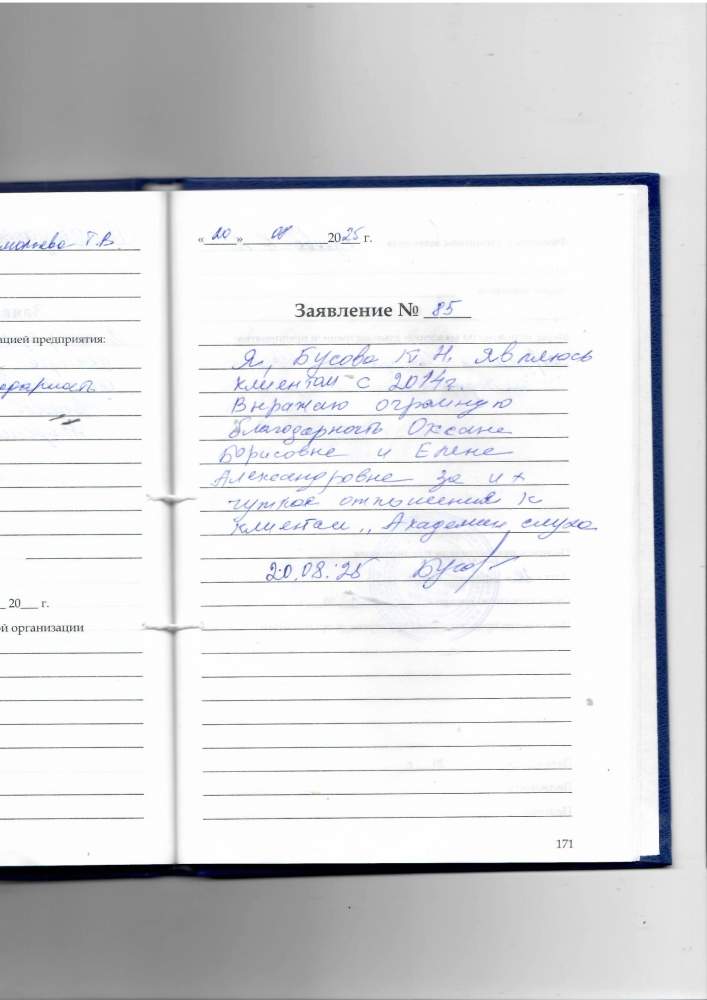 Т.В.
ацией предприятия:
20___ г.
ой организации
«20» 08 2025 г.
Заявление № 85
Я, Бусова К. Н. являюсь
клиентом с 2014г.
Выражаю огромную
благодарность Оксане
Борисовне и Елене
Александровне за их
чуткое отношения к
клиентам „Академии слуха
20.08.25
171